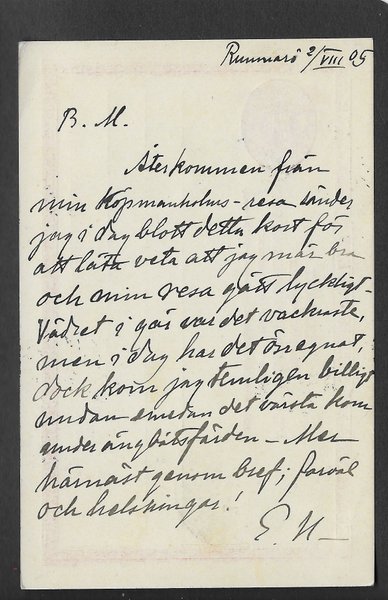 Runmarö 2/VIII 05
B. M.
Återkommen från
min Köpmanholms-resa sänder
jag i dag blott detta kort för
att låta veta att jag mår bra
och min resa gått lyckligt.
Vädret i går var det vackraste,
men i dag har det ösregnat,
dock kom jag temligen billigt
undan emedan det värsta kom
under ångbåtsfärden – Mer
härnäst genom bref; farväl
och helsningar!
E. H–